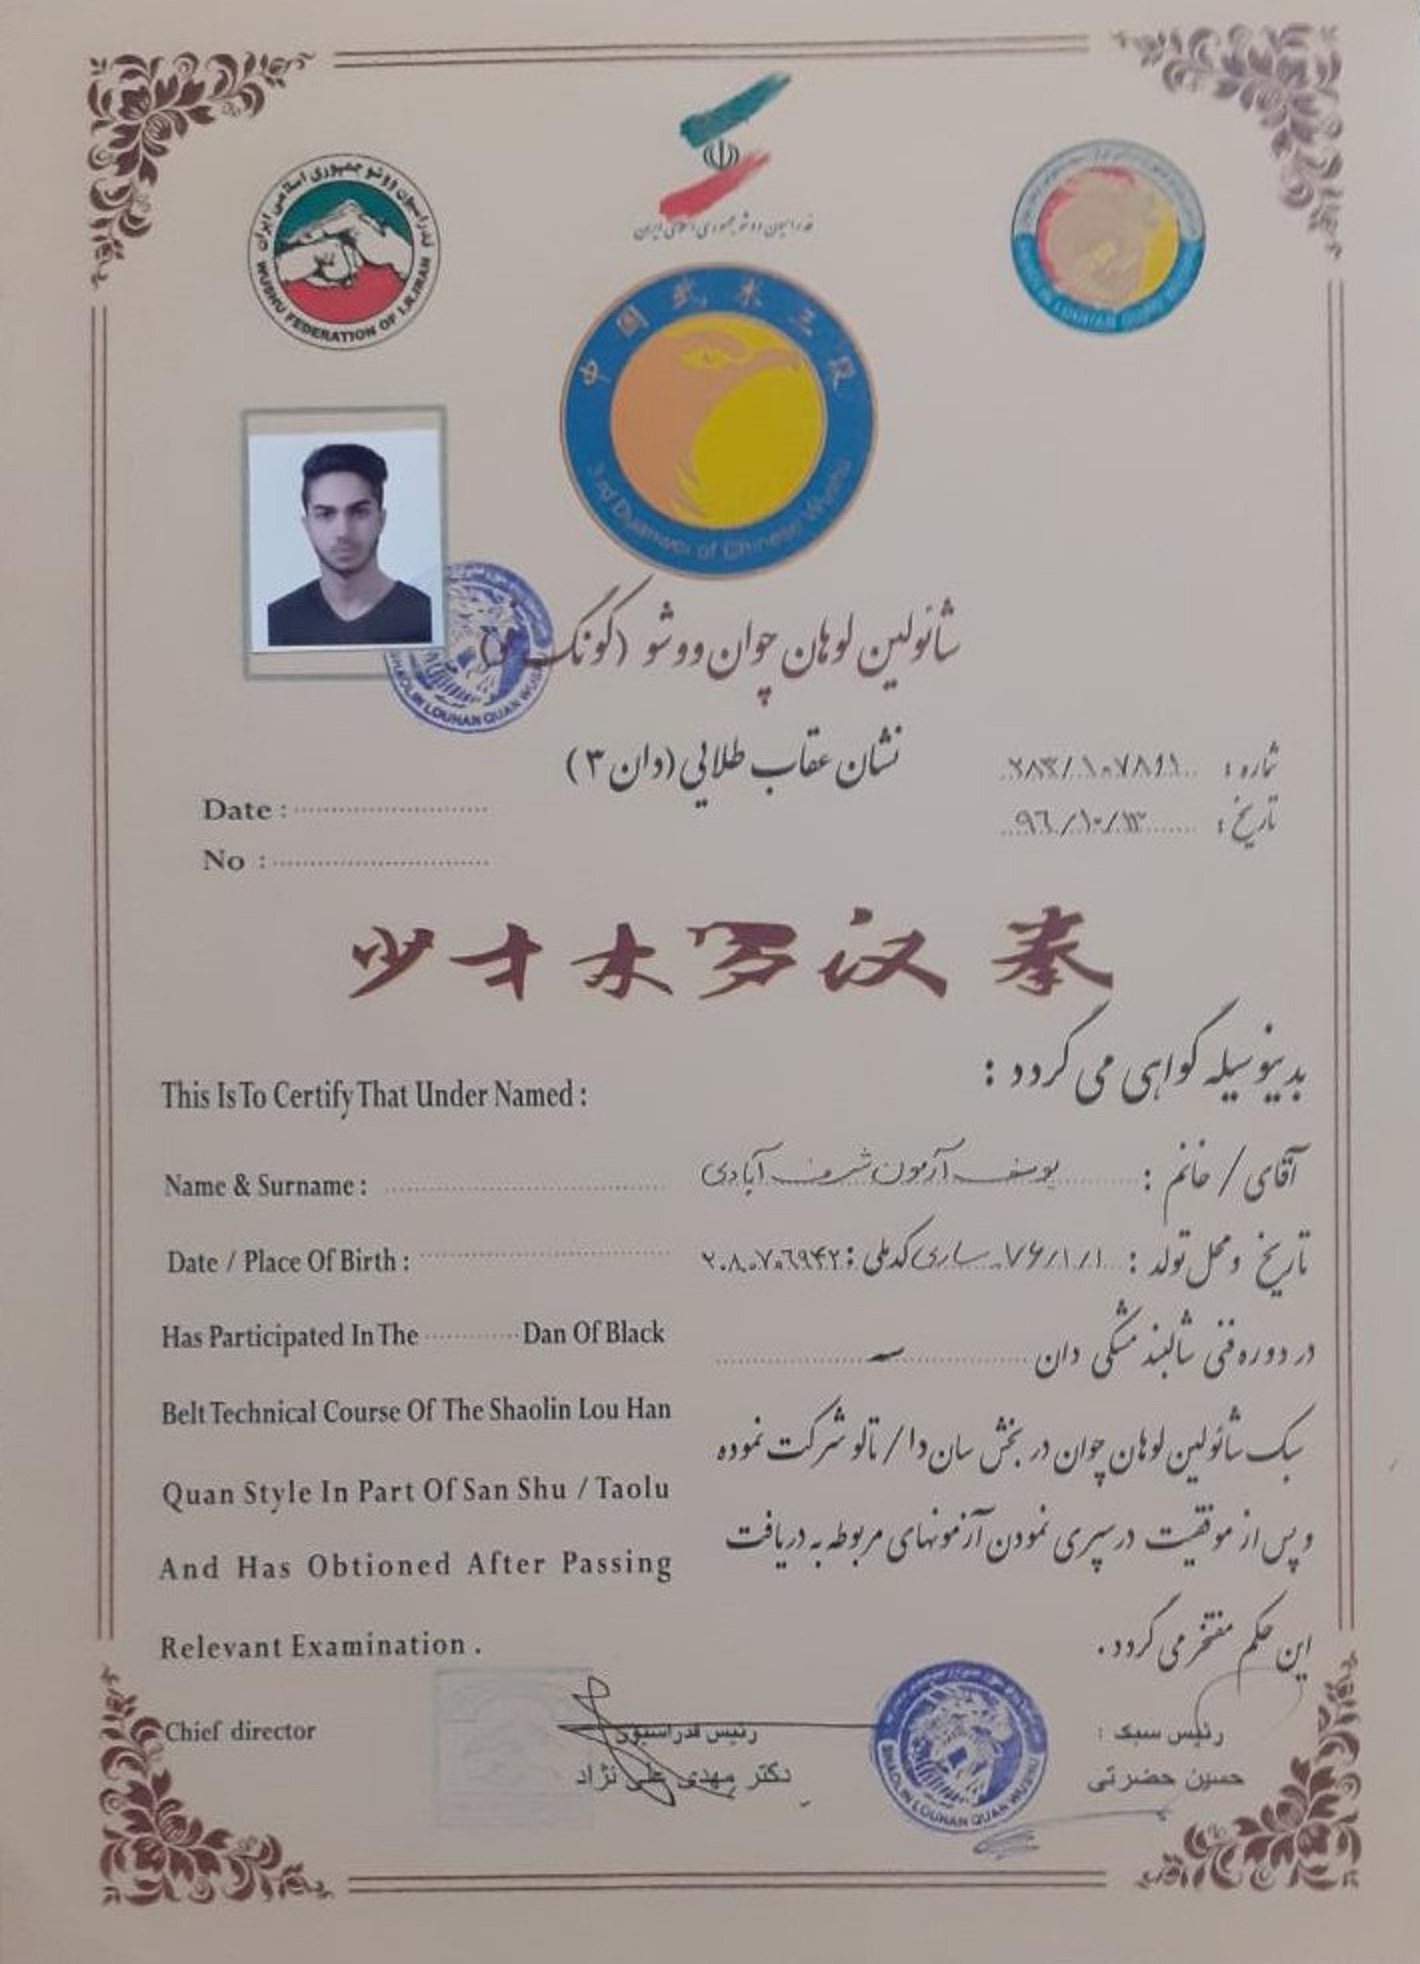 فدراسیون ووشو جمهوری اسلامی ایران
WUSHU FEDERATION OF I.R.IRAN
فدراسیون ووشو جمهوری اسلامی ایران
中国武术三段
3rd Duanwei of Chinese Wushu
SHAOLIN LOUHAN QUAN WUSHU
شائولین لوهان چوان ووشو (کونگ فو)
نشان عقاب طلایی (دان ۳)
شماره :
تاریخ : ۹۶/۱۰/۱۳
Date :
No :
少才木罗汉拳
بدینوسیله گواهی می گردد :
This Is To Certify That Under Named :
آقای / خانم : یوسف آزمون شرف آبادی
Name & Surname :
تاریخ و محل تولد : ۷۶/۱/۱ ساری کدملی : ۲۰۸۰۷۰۶۹۴۲
Date / Place Of Birth :
در دوره فنی شالبند مشکی دان سه
Has Participated In The Dan Of Black
سبک شائولین لوهان چوان در بخش سان دا / تالو شرکت نموده
Belt Technical Course Of The Shaolin Lou Han
Quan Style In Part Of San Shu / Taolu
و پس از موفقیت در سپری نمودن آزمونهای مربوطه به دریافت
And Has Obtioned After Passing
این حکم مفتخر می گردد .
Relevant Examination .
رئیس سبک :
حسین حضرتی
رئیس فدراسیون
دکتر مهدی علی نژاد
Chief director
SHAOLIN LOUHAN QUAN WUSHU